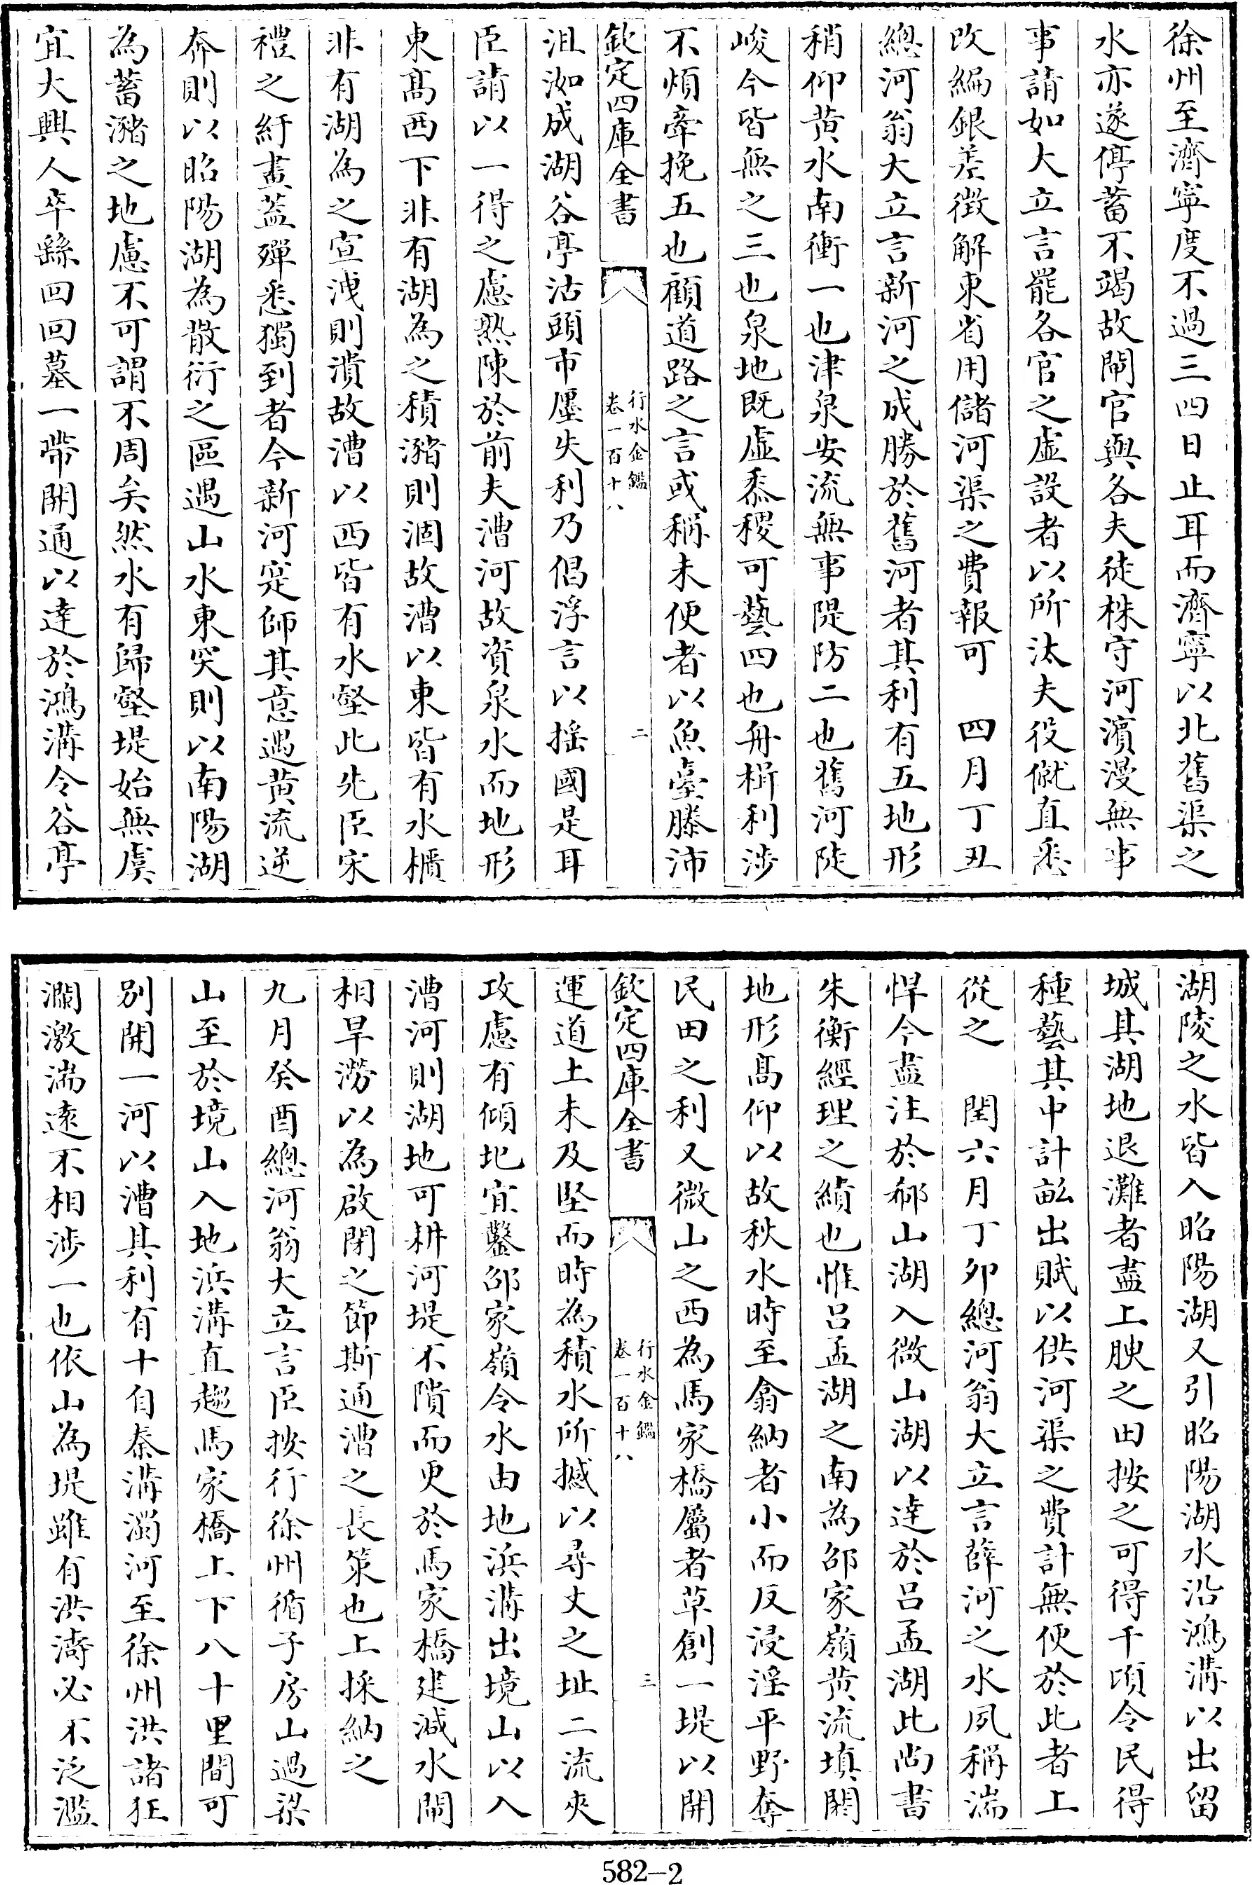 徐州至濟寧度不過三四日止耳而濟寧以北舊渠之
水亦遂停蓄不竭故閘官與各夫徒株守河濵漫無事
事請如大立言罷各官之虛設者以所汰夫役僦直悉
改編銀差徵解東省用儲河渠之費報可　四月丁丑
總河翁大立言新河之成勝於舊河者其利有五地形
稍仰黄水南衝一也津泉安流無事隄防二也舊河陡
峻今皆無之三也泉地既虛黍稷可藝四也舟楫利涉
不煩牽挽五也顧道路之言或稱未便者以魚臺滕沛
欽定四庫全書
行水金鑑
卷一百十八
二
沮洳成湖谷亭沽頭市廛失利乃倡浮言以揺國是耳
臣請以一得之慮熟陳於前夫漕河故資泉水而地形
東髙西下非有湖為之積瀦則涸故漕以東皆有水櫃
非有湖為之宣洩則潰故漕以西皆有水壑此先臣宋
禮之紆畫葢殫悉獨到者今新河寔師其意遇黄流逆
奔則以昭陽湖為散衍之區遇山水東突則以南陽湖
為蓄瀦之地慮不可謂不周矣然水有歸壑堤始無虞
宜大興人卒繇回回墓一帶開通以達於鴻溝令谷亭
湖陵之水皆入昭陽湖又引昭陽湖水沿鴻溝以出留
城其湖地退灘者盡上腴之田按之可得千頃令民得
種藝其中計畝出賦以供河渠之費計無便於此者上
從之　閏六月丁卯總河翁大立言薛河之水夙稱湍
悍今盡注於郗山湖入微山湖以達於呂孟湖此尚書
朱衡經理之績也惟呂孟湖之南為邵家嶺黄流填閼
地形髙仰以故秋水時至翕納者小而反浸淫平野奪
民田之利又微山之西為馬家橋屬者草創一堤以開
欽定四庫全書
行水金鑑
卷一百十八
三
運道土未及堅而時為積水所撼以尋丈之址二流夾
攻慮有傾圮宜鑿邵家嶺令水由地浜溝出境山以入
漕河則湖地可耕河堤不隤而更於馬家橋建減水閘
相旱澇以為啟閉之節斯通漕之長策也上採納之
九月癸酉總河翁大立言臣按行徐州循子房山過梁
山至於境山入地浜溝直趨馬家橋上下八十里間可
別開一河以漕其利有十自秦溝濁河至徐州洪諸狂
瀾激湍遠不相涉一也依山為堤雖有洪濤必不泛濫
582-2